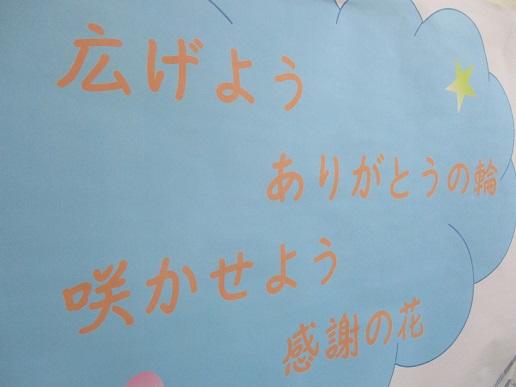 広げよう
ありがとうの輪
咲かせよう
感謝の花